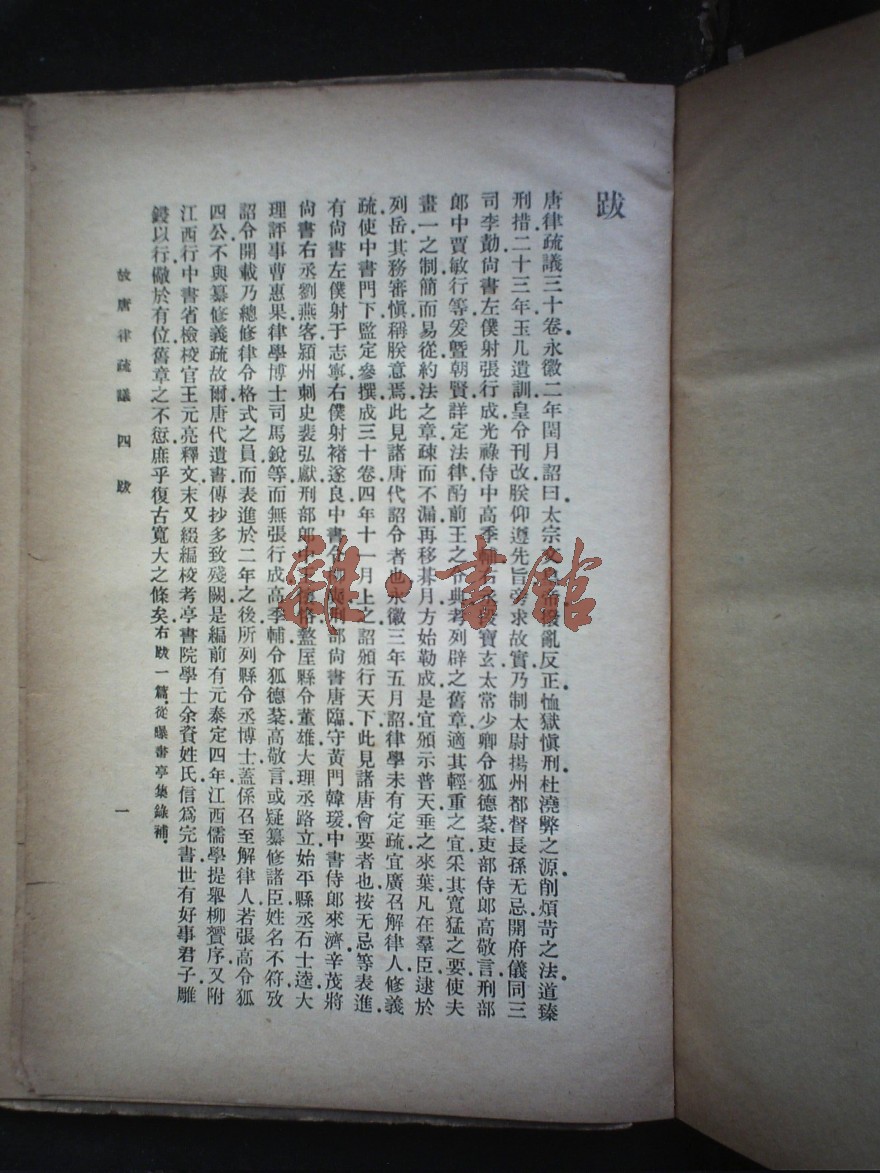 跋
唐律疏議三十卷永徽二年閏月詔曰太宗文皇帝撥亂反正恤獄愼刑杜澆弊之源削煩苛之法道臻
刑措二十三年玉几遺訓皇令刊改朕仰遵先旨旁求故實乃制太尉揚州都督長孫无忌開府儀同三
司李勣尙書左僕射張行成光祿侍中高季輔右丞段寶玄太常少卿令狐德棻吏部侍郎高敬言刑部
郎中賈敏行等爰曁朝賢詳定法律酌前王之令典考列辟之舊章適其輕重之宜采其寬猛之要使夫
畫一之制簡而易從約法之章疎而不漏再移朞月方始勒成是宜頒示普天垂之來葉凡在羣臣逮於
列岳其務審愼稱朕意焉此見諸唐代詔令者也永徽三年五月詔律學未有定疏宜廣召解律人修義
疏使中書門下監定參撰成三十卷四年十一月上之詔頒行天下此見諸唐會要者也按无忌等表進
有尙書左僕射于志寧右僕射褚遂良中書令柳奭刑部尙書唐臨守黃門韓瑗中書侍郎來濟辛茂將
尙書右丞劉燕客潁州刺史裴弘獻刑部郎中王懷恪盩厔縣令董雄大理丞路立始平縣丞石士逵大
理評事曹惠果律學博士司馬銳等而無張行成高季輔令狐德棻高敬言或疑纂修諸臣姓名不符攷
詔令開載乃總修律令格式之員而表進於二年之後所列縣令丞博士蓋係召至解律人若張高令狐
四公不與纂修義疏故爾唐代遺書傳抄多致殘闕是編前有元泰定四年江西儒學提舉柳贇序又附
江西行中書省檢校官王元亮釋文末又綴編校考亭書院學士余資姓氏信爲完書世有好事君子雕
鋟以行儆於有位舊章之不愆庶乎復古寬大之條矣右跋一篇從曝書亭集錄補
故唐律疏議 四跋
一
雜·書館